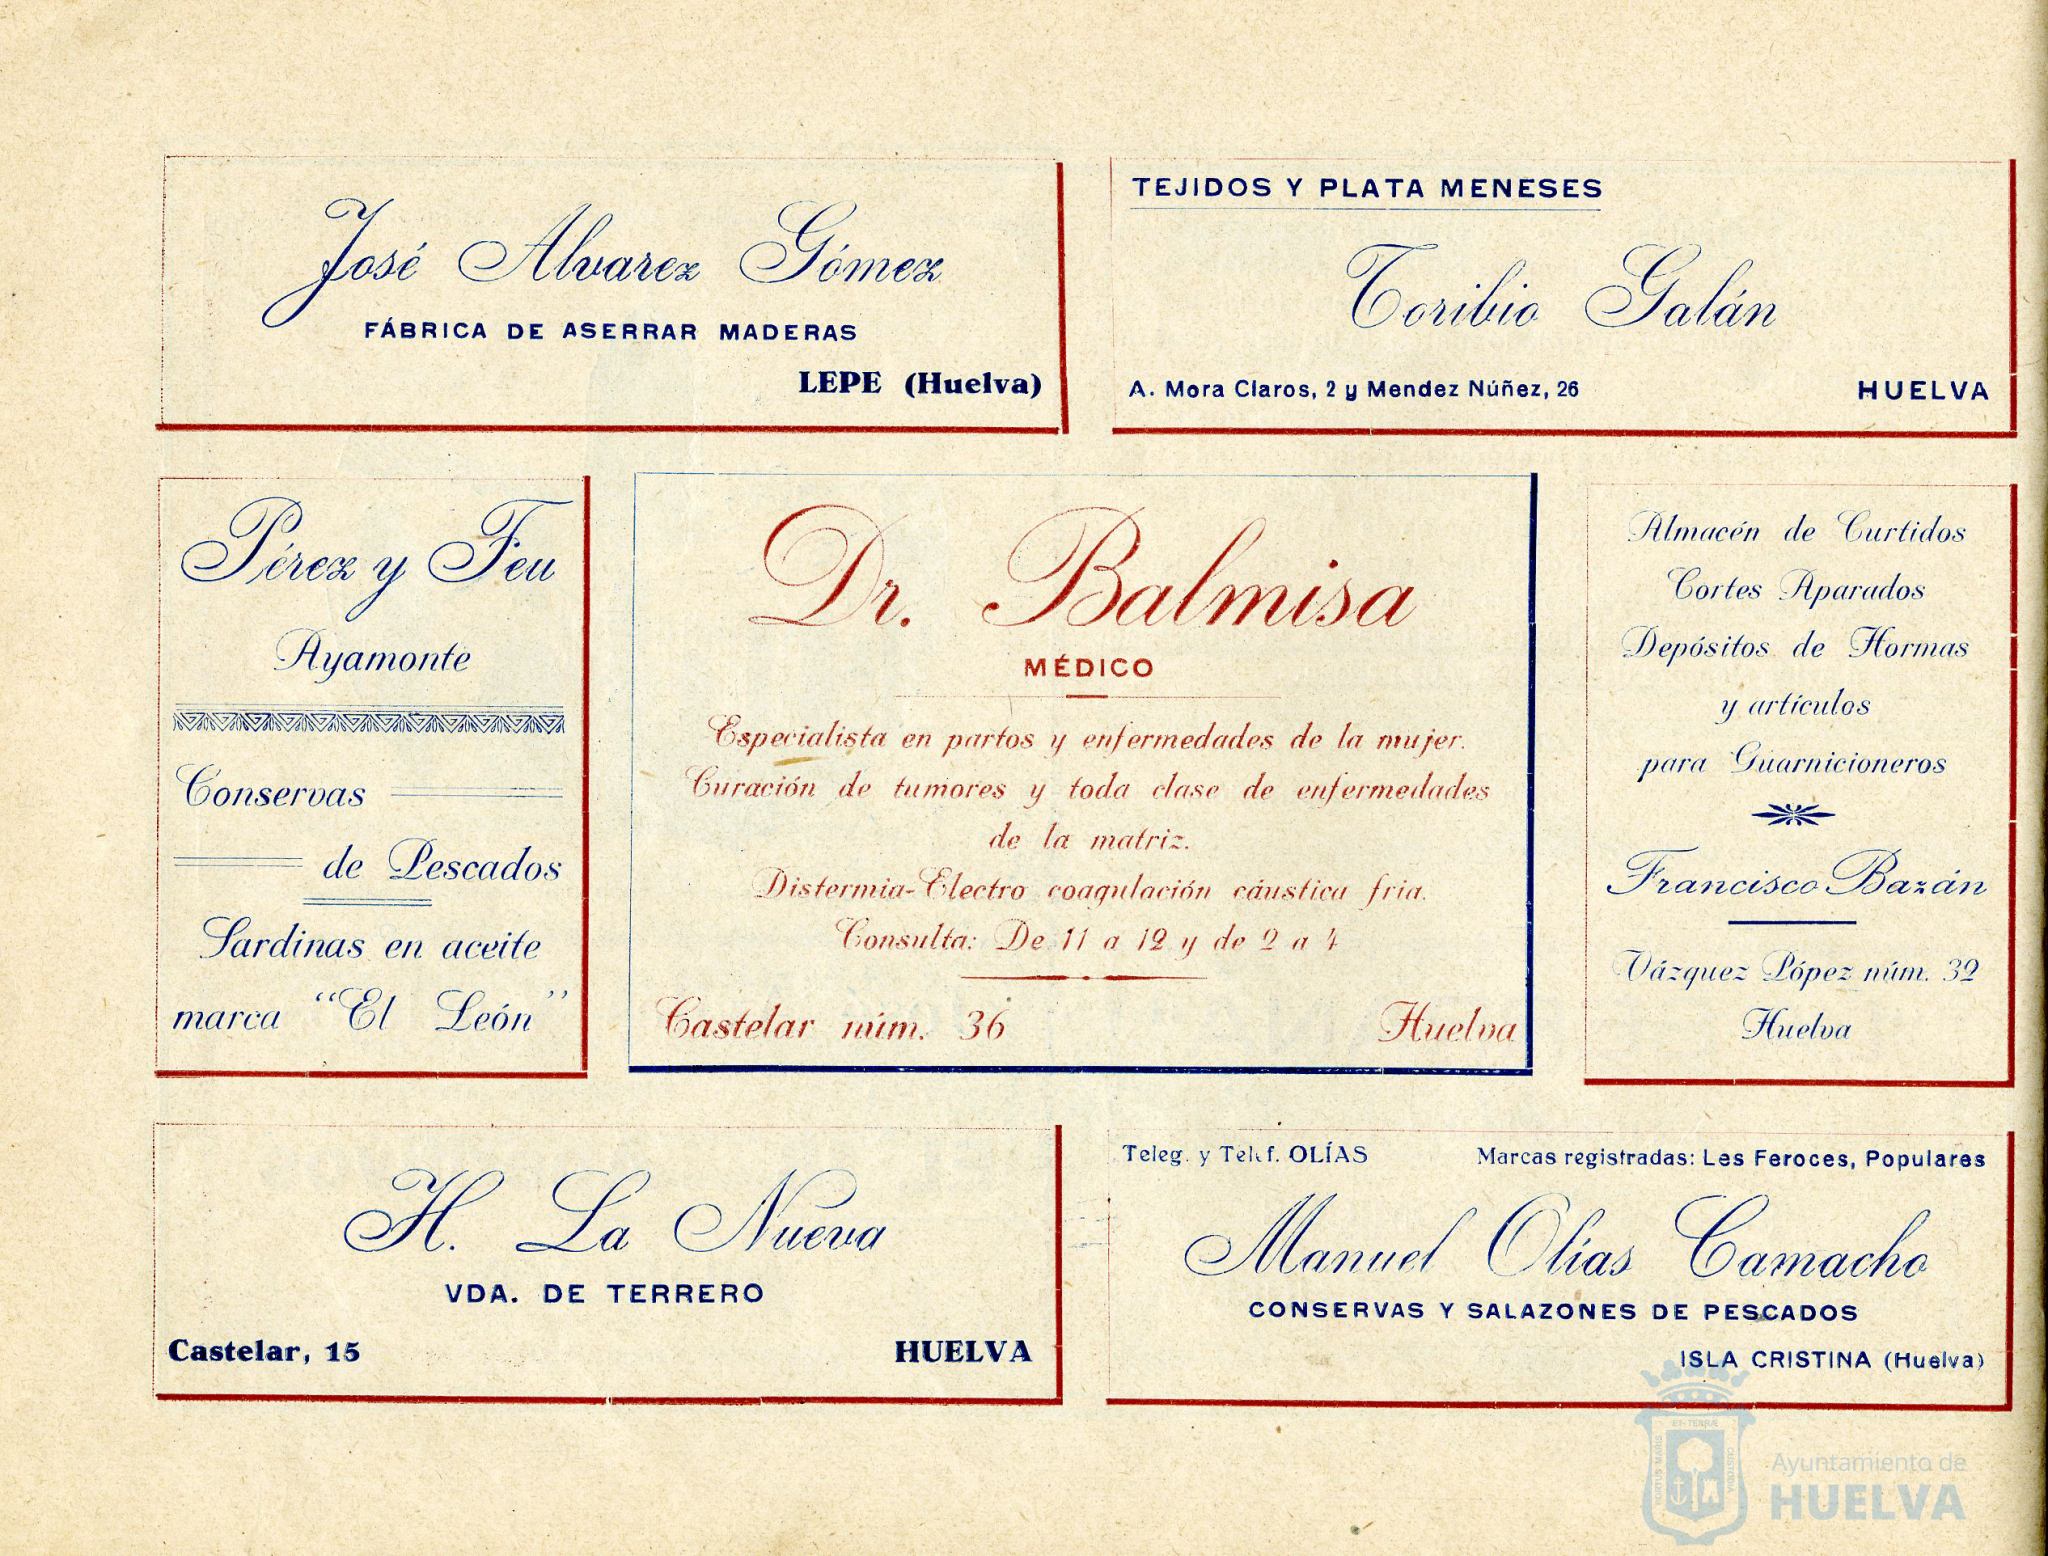 José Alvarez Gómez
FÁBRICA DE ASERRAR MADERAS
LEPE (Huelva)
TEJIDOS Y PLATA MENESES
Toribio Galán
A. Mora Claros, 2 y Mendez Núñez, 26 HUELVA
Pérez y Feu
Ayamonte
Conservas
de Pescados
Sardinas en aceite
marca "El León"
Dr. Balmisa
MÉDICO
Especialista en partos y enfermedades de la mujer.
Curación de tumores y toda clase de enfermedades
de la matriz.
Distermia-Electro coagulación cáustica fria.
Consulta: De 11 a 12 y de 2 a 4
Castelar núm. 36 Huelva
Almacén de Curtidos
Cortes Aparados
Depósitos de Hormas
y artículos
para Guarnicioneros
Francisco Bazán
Vázquez López núm. 32
Huelva
H. La Nueva
VDA. DE TERRERO
Castelar, 15 HUELVA
Teleg. y Telef. OLÍAS Marcas registradas: Les Feroces, Populares
Manuel Olías Camacho
CONSERVAS Y SALAZONES DE PESCADOS
ISLA CRISTINA (Huelva)
PORTUS MARIS
ET TERRÆ
CUSTODIA
Ayuntamiento de
HUELVA